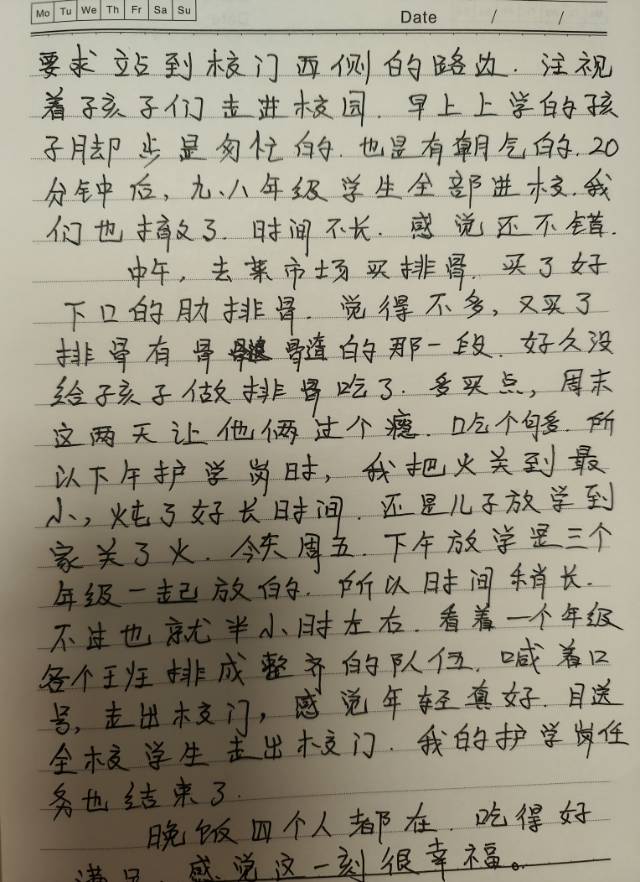 Mo Tu We Th Fr Sa Su
Date / /
要求站到校门西侧的路边.注视
着孩子们走进校园.早上上学的孩
子脚步是匆忙的.也是有朝气的.20
分钟后,九、八年级学生全部进校.我
们也撤了.时间不长.感觉还不错.
中午,去菜市场买排骨.买了好
下口的肋排骨.觉得不多,又买了
排骨有骨 骨渣的那一段.好久没
给孩子做排骨吃了.多买点,周末
这两天让他俩过个瘾.吃个够.所
以下午护学岗时,我把火关到最
小,炖了好长时间.还是儿子放学到
家关了火.今天周五.下午放学是三个
年级一起放的.所以时间稍长.
不过也就半小时左右.看着一个年级
各个班排成整齐的队伍.喊着口
号,走出校门,感觉年轻真好.目送
全校学生走出校门.我的护学岗任
务也结束了.
晚饭四个人都在.吃得好
满足.感觉这一刻很幸福。